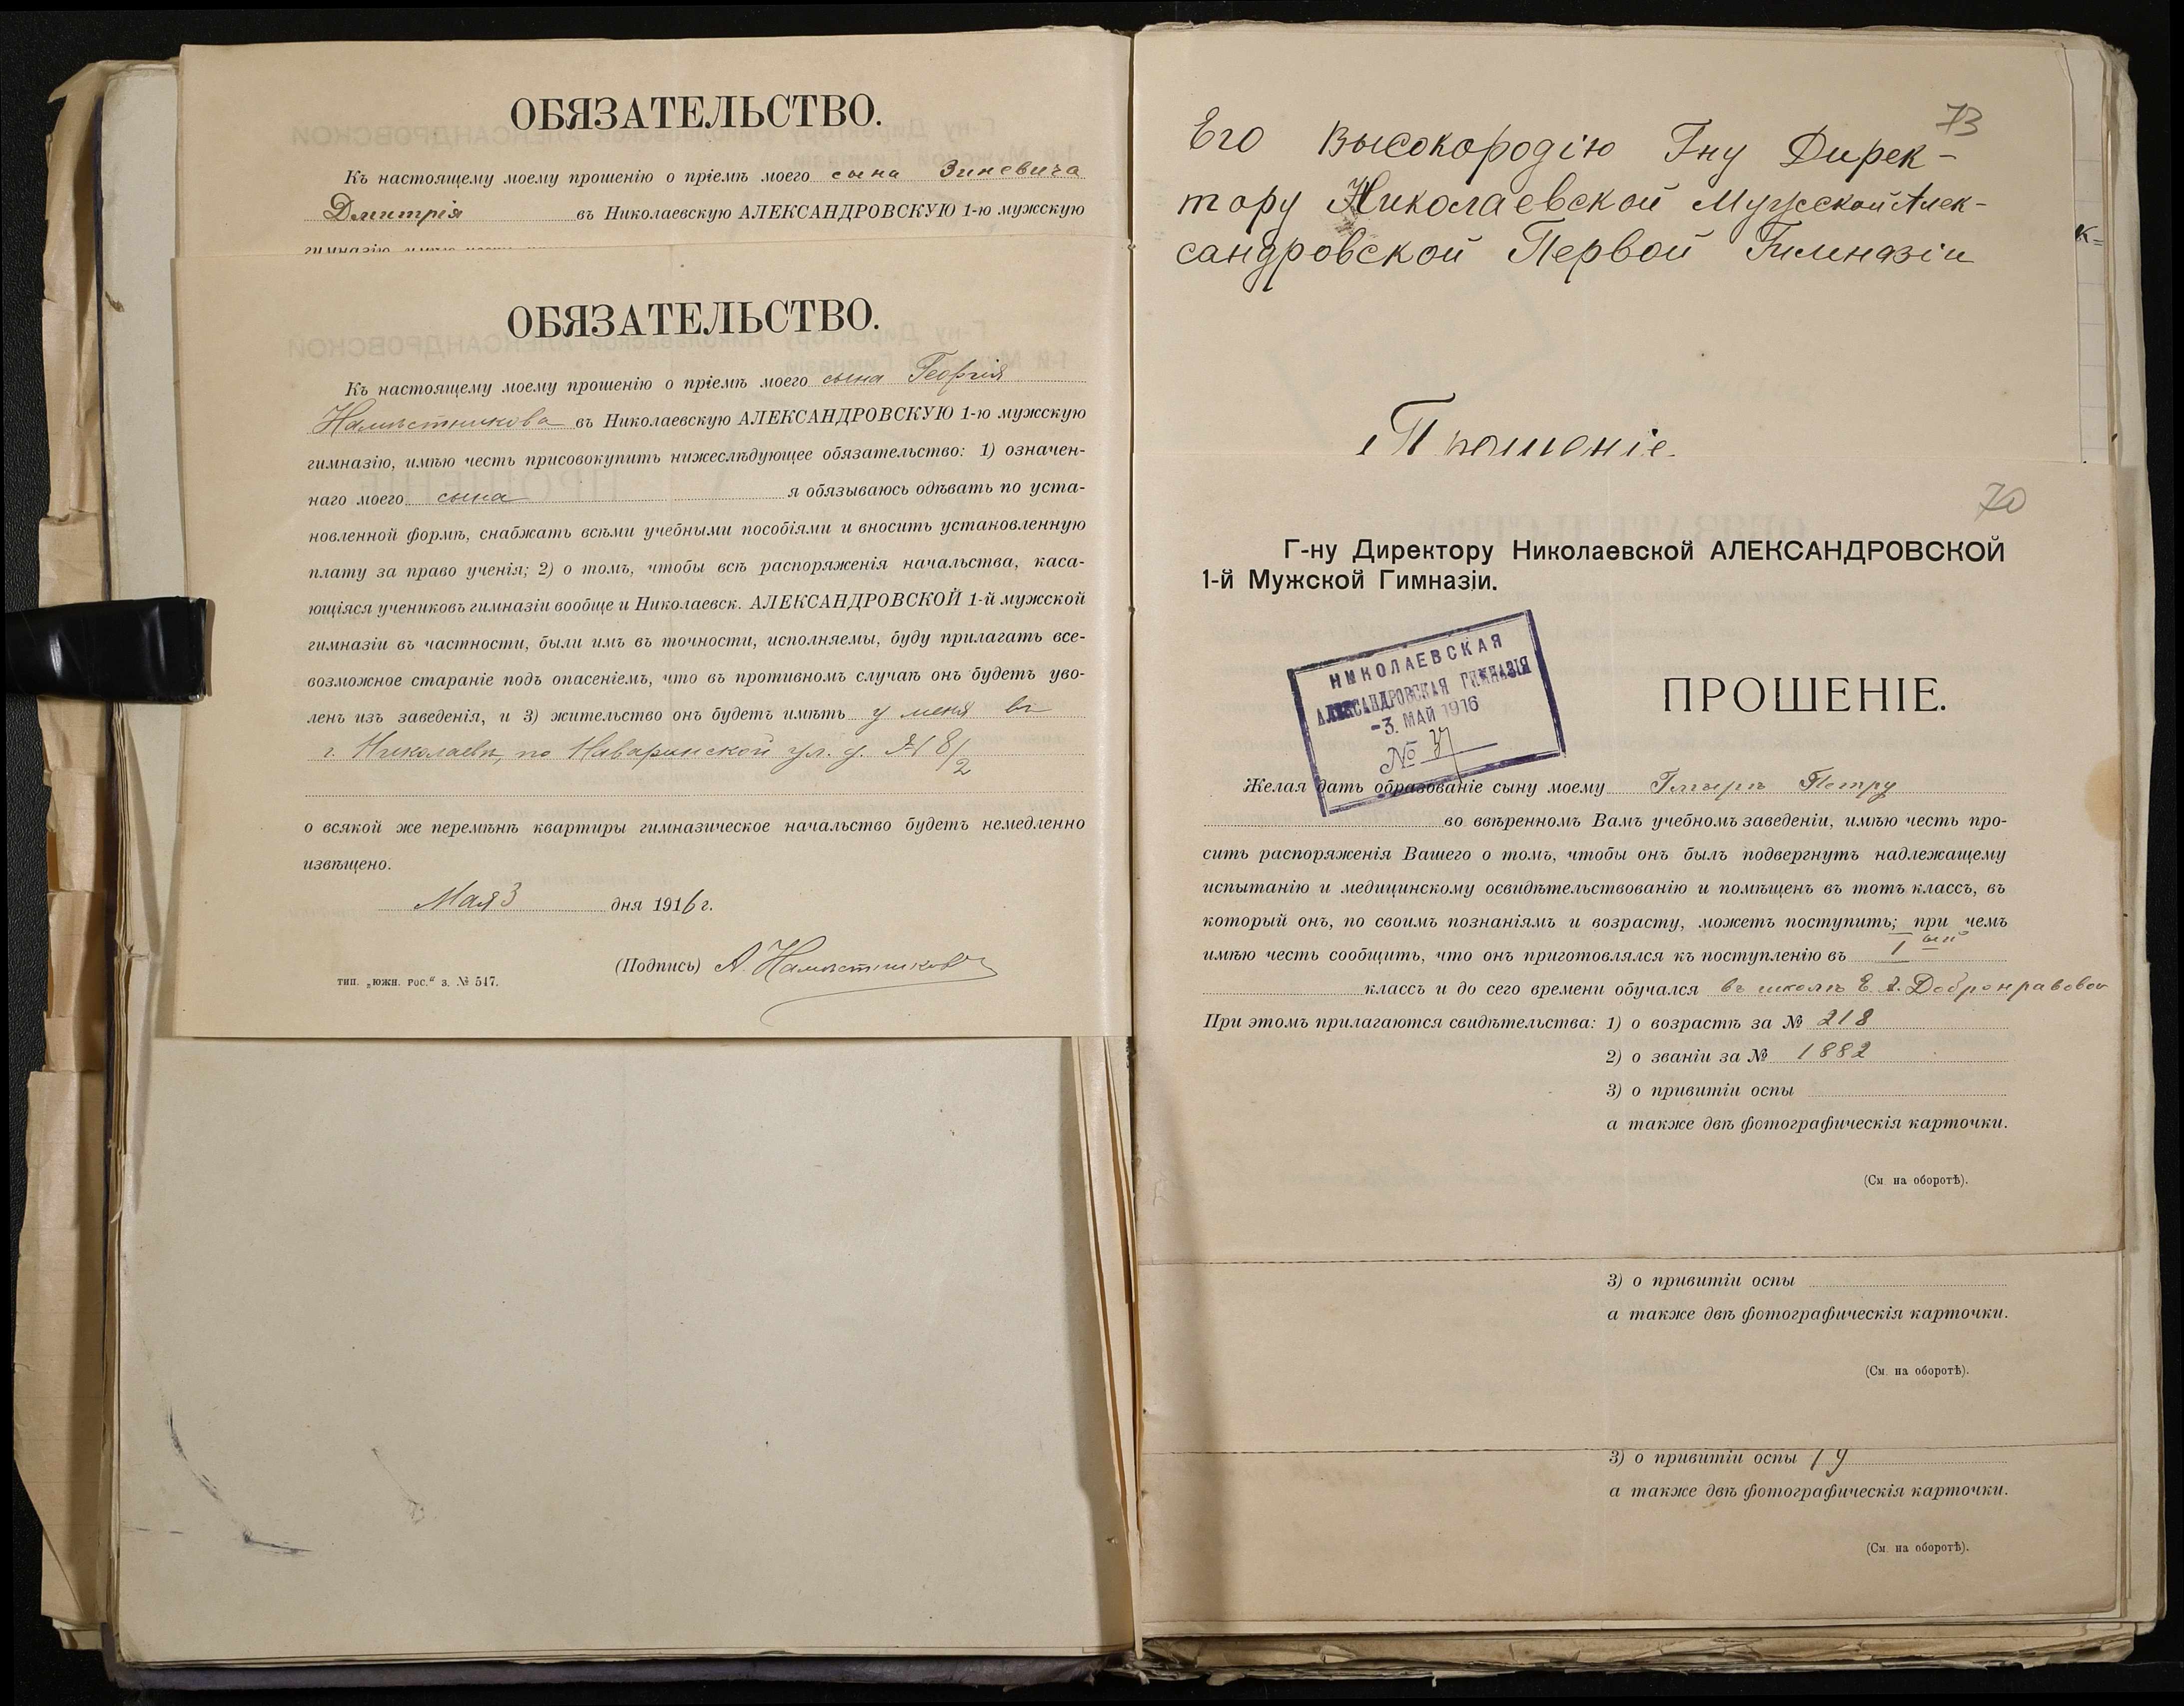 ОБЯЗАТЕЛЬСТВО.
Къ настоящему моему прошенію о пріемѣ моего сына Зиневича
Дмитрія въ Николаевскую АЛЕКСАНДРОВСКУЮ 1-ю мужскую
ОБЯЗАТЕЛЬСТВО.
Къ настоящему моему прошенію о пріемѣ моего сына Георгія
Намѣстникова въ Николаевскую АЛЕКСАНДРОВСКУЮ 1-ю мужскую
гимназію, имѣю честь присовокупить нижеслѣдующее обязательство: 1) означен-
наго моего сына я обязываюсь одѣвать по уста-
новленной формѣ, снабжать всѣми учебными пособіями и вносить установленную
плату за право ученія; 2) о томъ, чтобы всѣ распоряженія начальства, каса-
ющіяся учениковъ гимназіи вообще и Николаевск. АЛЕКСАНДРОВСКОЙ 1-й мужской
гимназіи въ частности, были имъ въ точности, исполняемы, буду прилагать все-
возможное стараніе подъ опасеніемъ, что въ противномъ случаѣ онъ будетъ уво-
ленъ изъ заведенія, и 3) жительство онъ будетъ имѣть у меня въ
г. Николаевѣ, по Наваринской ул. д. № 8/2
о всякой же перемѣнѣ квартиры гимназическое начальство будетъ немедленно
извѣщено.
Мая 3 дня 1916 г.
(Подпись) А. Намѣстниковъ
тип. „южн. рос.“ з. № 547.
73
Его Высокородію Гну Дирек-
тору Николаевской Мужской Алек-
сандровской Первой Гимназіи
к=
Прошеніе.
70
Г-ну Директору Николаевской АЛЕКСАНДРОВСКОЙ
1-й Мужской Гимназіи.
НИКОЛАЕВСКАЯ
АЛЕКСАНДРОВСКАЯ ГИМНАЗІЯ
-3. МАЙ 1916
№
ПРОШЕНІЕ.
Желая дать образованіе сыну моему Петру
во ввѣренномъ Вамъ учебномъ заведеніи, имѣю честь про-
сить распоряженія Вашего о томъ, чтобы онъ былъ подвергнутъ надлежащему
испытанію и медицинскому освидѣтельствованію и помѣщенъ въ тотъ классъ, въ
который онъ, по своимъ познаніямъ и возрасту, можетъ поступить; при чемъ
имѣю честь сообщить, что онъ приготовлялся къ поступленію въ I ый
классъ и до сего времени обучался въ школѣ Е. А. Добронравовой
При этомъ прилагаются свидѣтельства: 1) о возрастѣ за № 218
2) о званіи за № 1882
3) о привитіи оспы
а также двѣ фотографическія карточки.
(См. на оборотѣ).
3) о привитіи оспы
а также двѣ фотографическія карточки.
(См. на оборотѣ).
3) о привитіи оспы
а также двѣ фотографическія карточки.
(См. на оборотѣ).